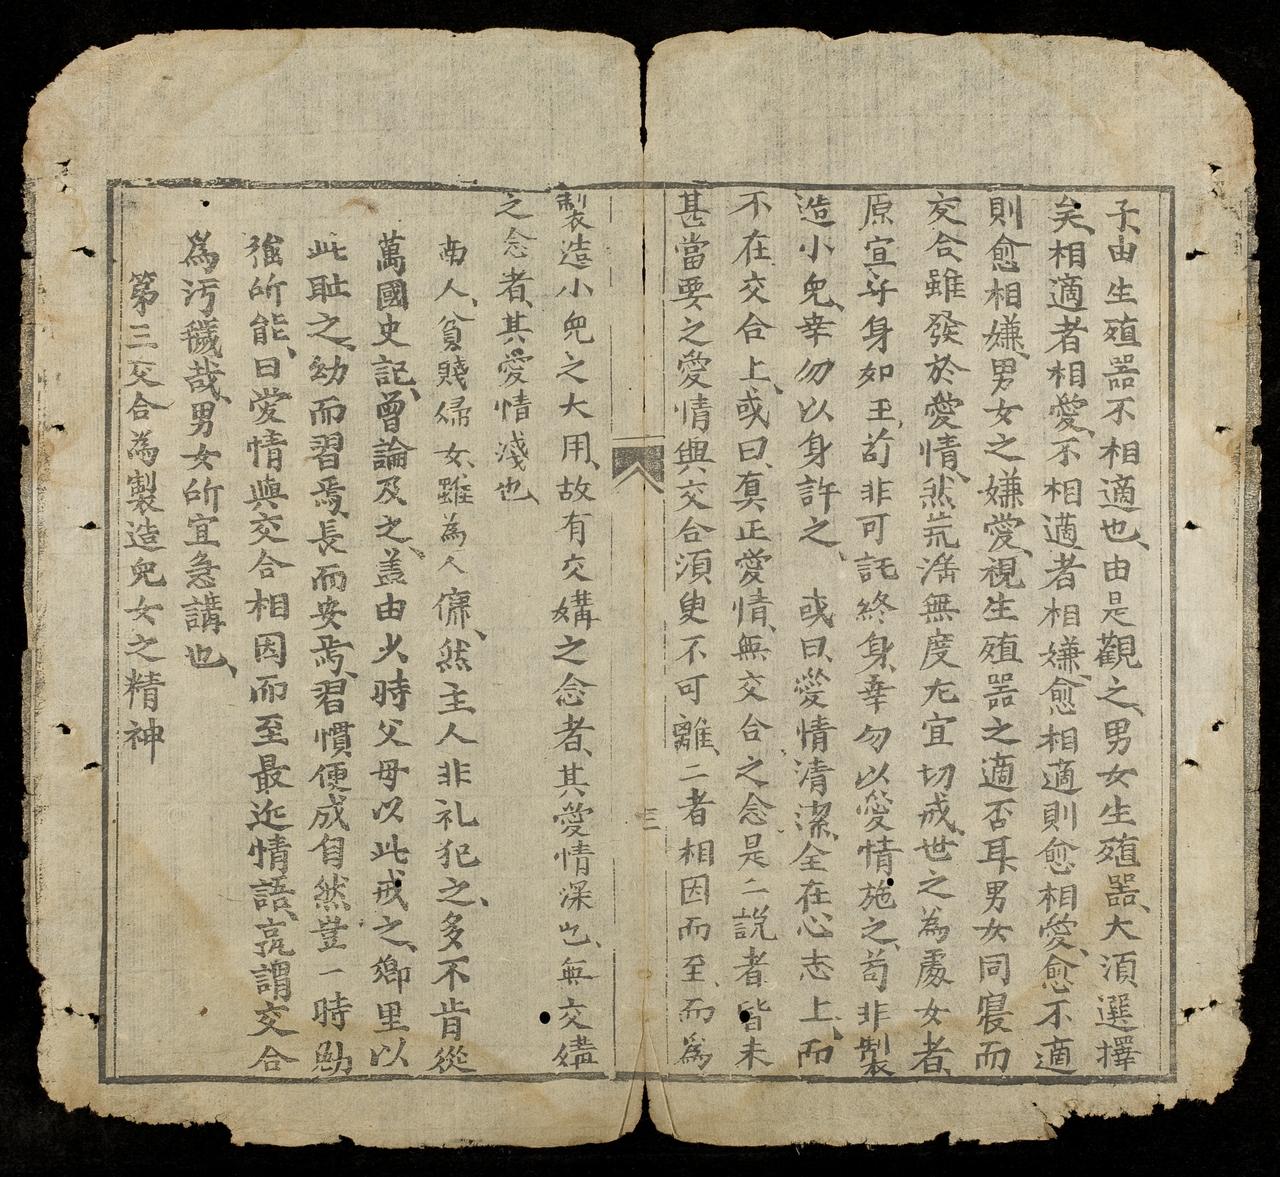 子、由生殖器不相適也、由是觀之、男女生殖器、大須選擇
矣、相適者相愛、不相適者相嫌、愈相適則愈相愛、愈不適
則愈相嫌、男女之嫌愛、視生殖器之適否耳、男女同寝而
交合、雖發於愛情、然荒淫無度、尤宜切戒、世之為處女者、
原宜守身如玉、苟非可託終身、幸勿以愛情施之、苟非製
造小児、幸勿以身許之、 或曰、愛情清潔、全在心志上、而
不在交合上、或曰、真正愛情、無交合之念、是二說者、皆未
甚當、要之愛情與交合、須臾不可離、二者相因而至、而為
三
製造小兒之大用、故有交媾之念者、其愛情深也、無交媾
之念者、其愛情淺也、
南人、貧賤婦女、雖為人傭、然主人非礼犯之、多不肯從
萬國史記、曾論及之、盖由少時父母以此戒之、鄉里以
此耻之、幼而習焉、長而安焉、習慣便成自然、豈一時勉
強所能、曰愛情與交合相因而至、最近情語、孰謂交合
為汚穢哉、男女所宜急講也、
第三交合為製造兒女之精神